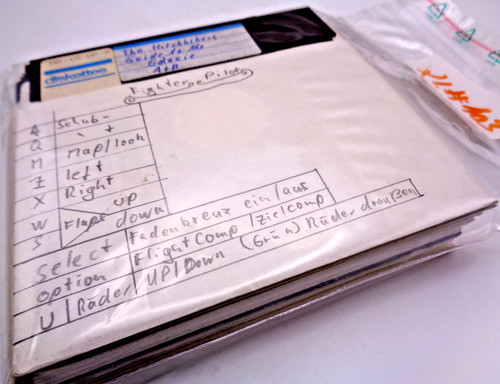 diskette
The Hitchhikers
Guide to the
Galaxie
A+B
Fighter Pilot
A Schub -
Q " +
M Map/look
Z left
X Right
W Flaps up
S down
Select Fadenkreuz ein/aus
option FlightComp/Zielcomp
U/Räder UP/Down (Grün) Räder draußen